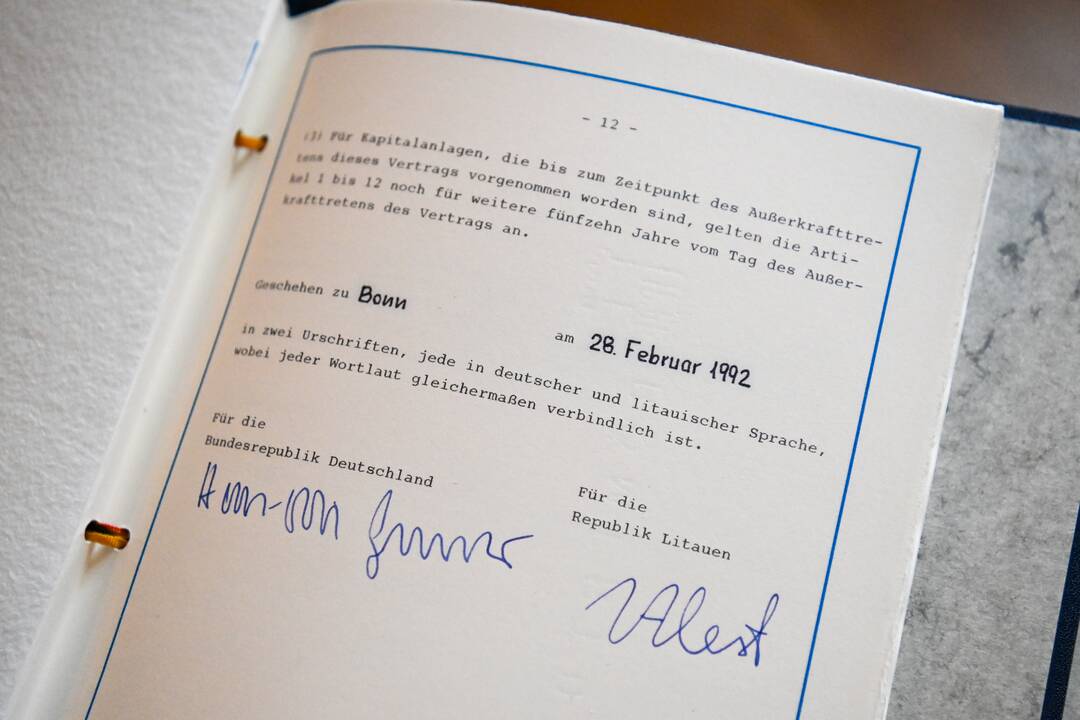 - 12 -
(3) Für Kapitalanlagen, die bis zum Zeitpunkt des Außerkrafttre-
tens dieses Vertrags vorgenommen worden sind, gelten die Arti-
kel 1 bis 12 noch für weitere fünfzehn Jahre vom Tag des Außer-
krafttretens des Vertrags an.
Geschehen zu Bonn
am 28. Februar 1992
in zwei Urschriften, jede in deutscher und litauischer Sprache,
wobei jeder Wortlaut gleichermaßen verbindlich ist.
Für die
Bundesrepublik Deutschland
Für die
Republik Litauen